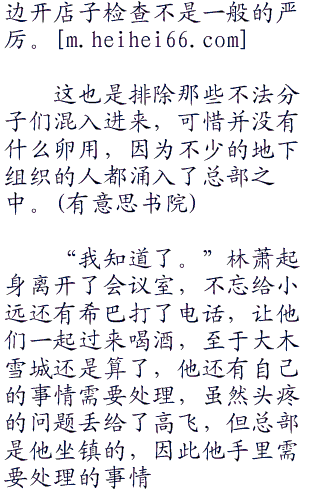 边开店子检查不是一般的严
厉。[m.heihei66.com]
这也是排除那些不法分
子们混入进来，可惜并没有
什么卵用，因为不少的地下
组织的人都涌入了总部之
中。(有意思书院)
“我知道了。”林萧起
身离开了会议室，不忘给小
远还有希巴打了电话，让他
们一起过来喝酒，至于大木
雪城还是算了，他还有自己
的事情需要处理，虽然头疼
的问题丢给了高飞，但总部
是他坐镇的，因此他手里需
要处理的事情